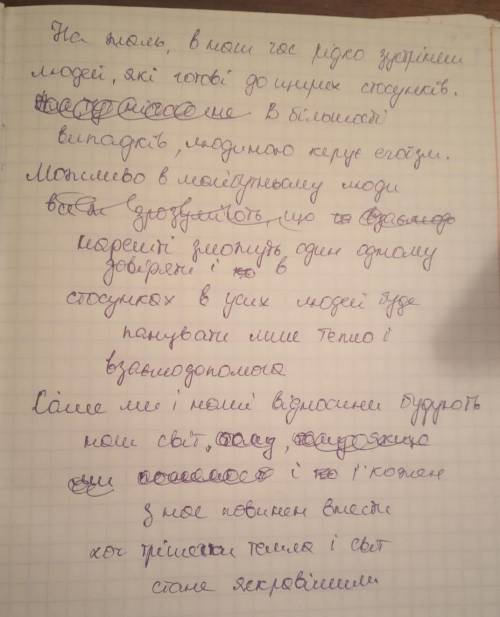 На жаль, в наш час рідко зустрінеш
людей, які готові до щирих стосунків.
В більшості
випадків, людиною керує егоїзм.
Можливо в майбутньому люди
все ж зрозуміють, що
нарешті зможуть один одному
довіряти і в
стосунках в усіх людей буде
панувати лише тепло і
взаємодопомога
Саме ми і наші відносини будують
наш світ, тому,
і і кожен
з нас повинен внести
хоч трішечки тепла і світ
стане яскравішим